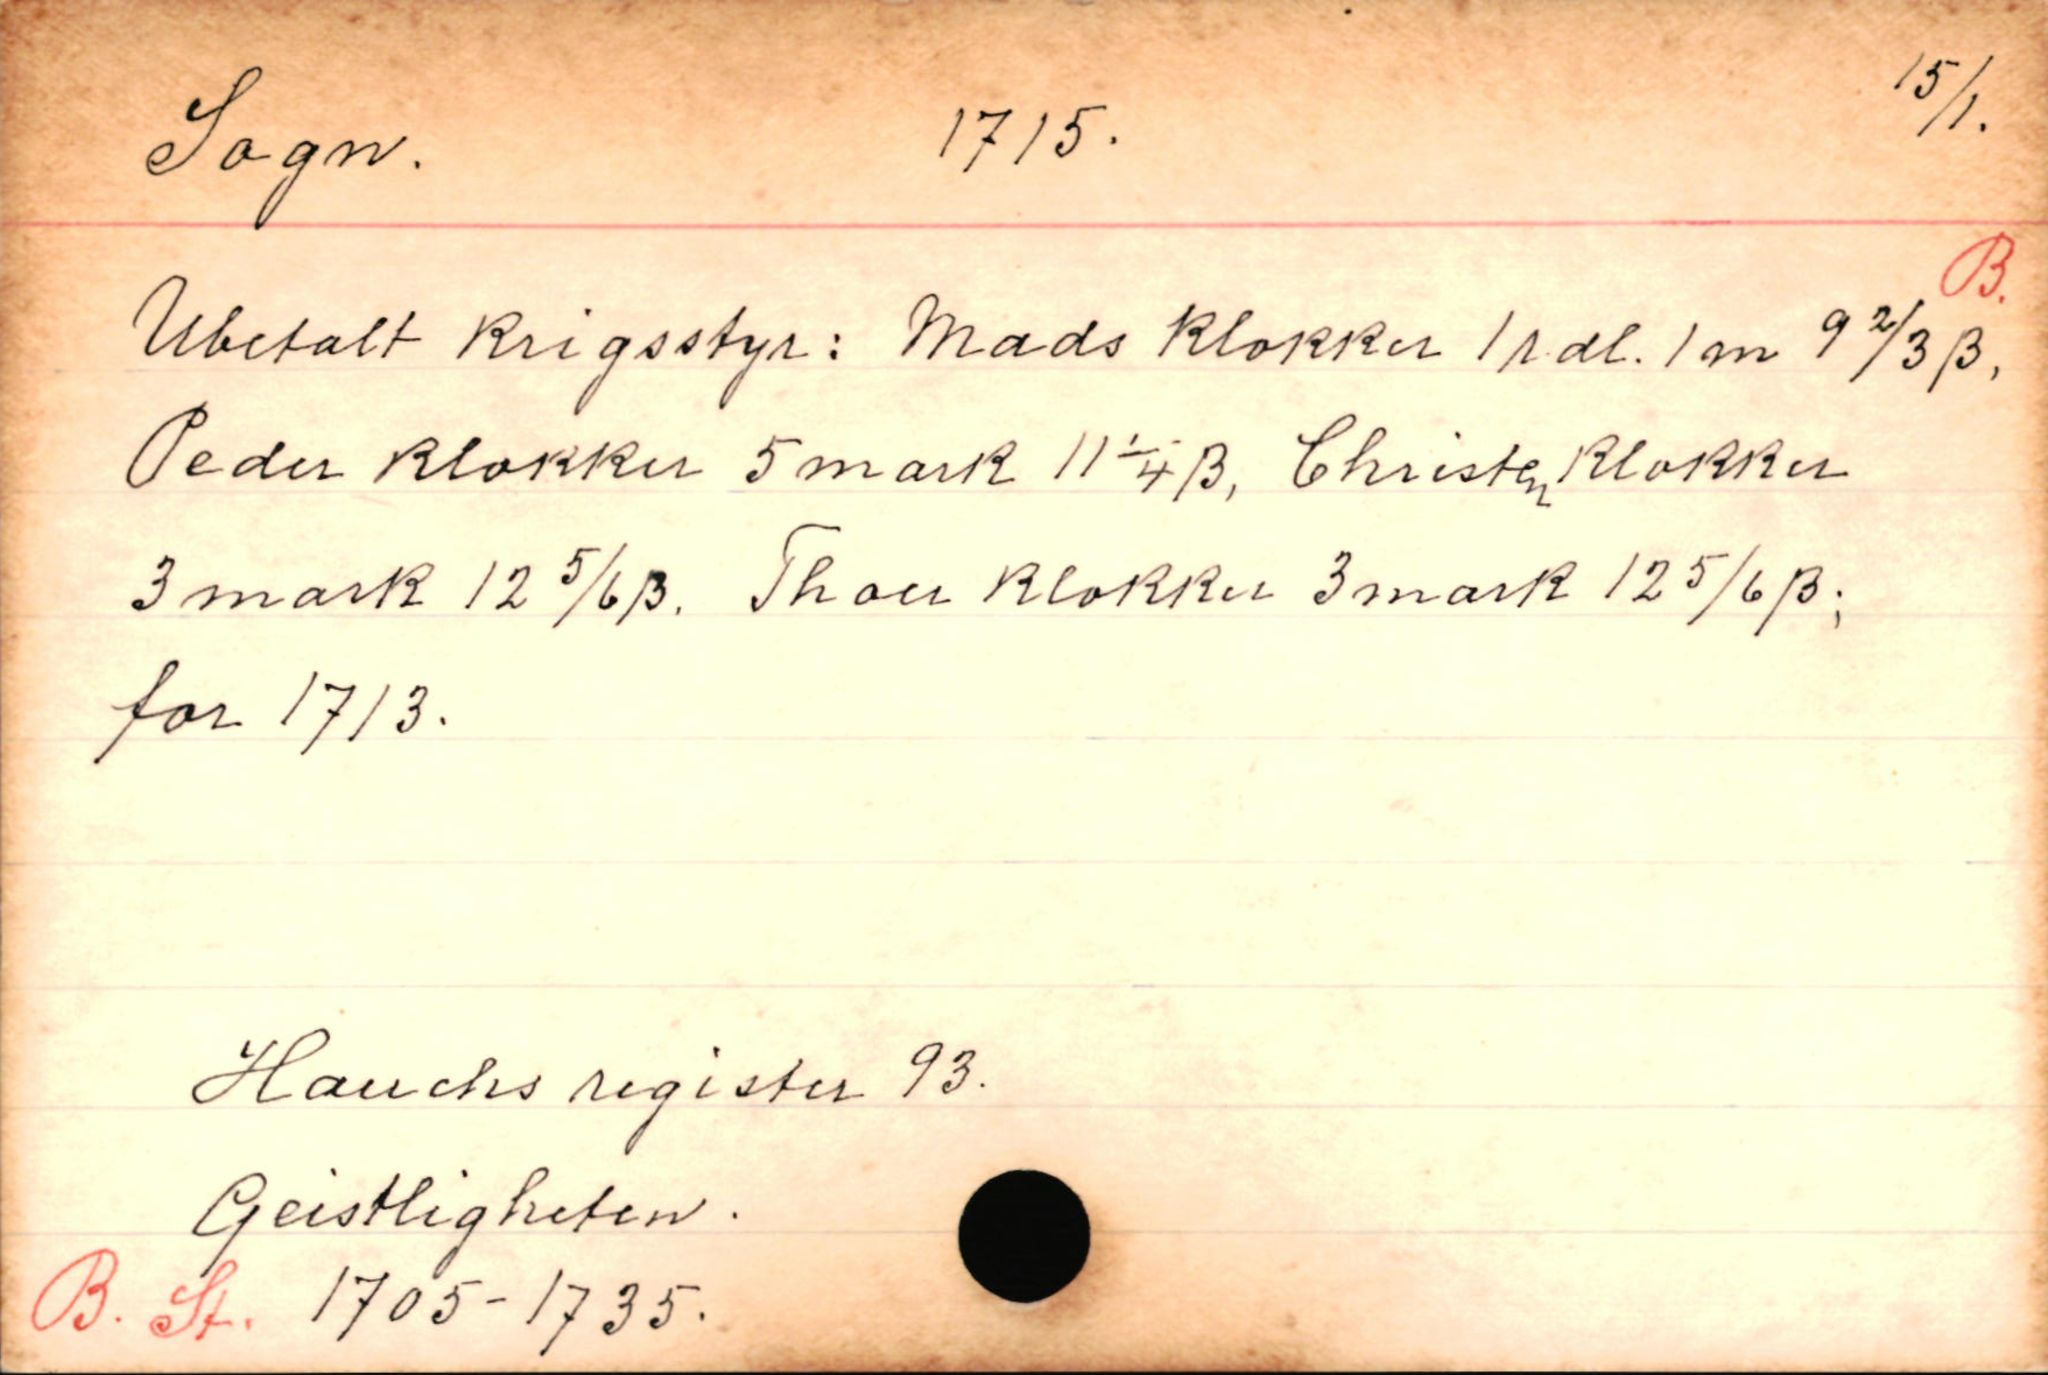 Sogn. 1715. 15/1.
B.
Ubetalt Krigsstyr: Mads Klokker 1 rdl. 1 m 9 2/3 β,
Peder Klokker 5 mark 11 1/4 β, Christen Klokker
3 mark 12 5/6 β. Thoer Klokker 3 mark 12 5/6 β;
for 1713.
Hauchs register 93.
Geistligheten.
B. St. 1705-1735.